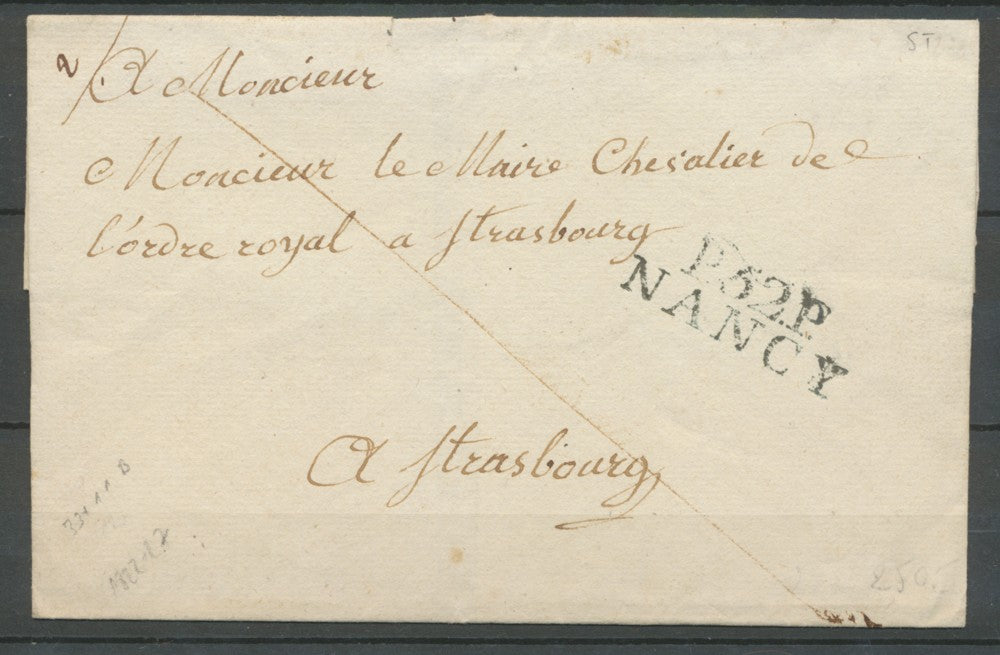 ST
2
A Moncieur
Moncieur le Maire Chevalier de
l'ordre royal a Strasbourg
P.52.P
NANCY
A Strasbourg
250.-